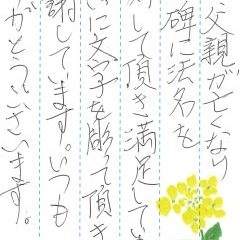 父親が亡くなり
碑に法名を
して頂き満足してい
いに文字を彫って頂き
謝しています。いつも
がとうございます。